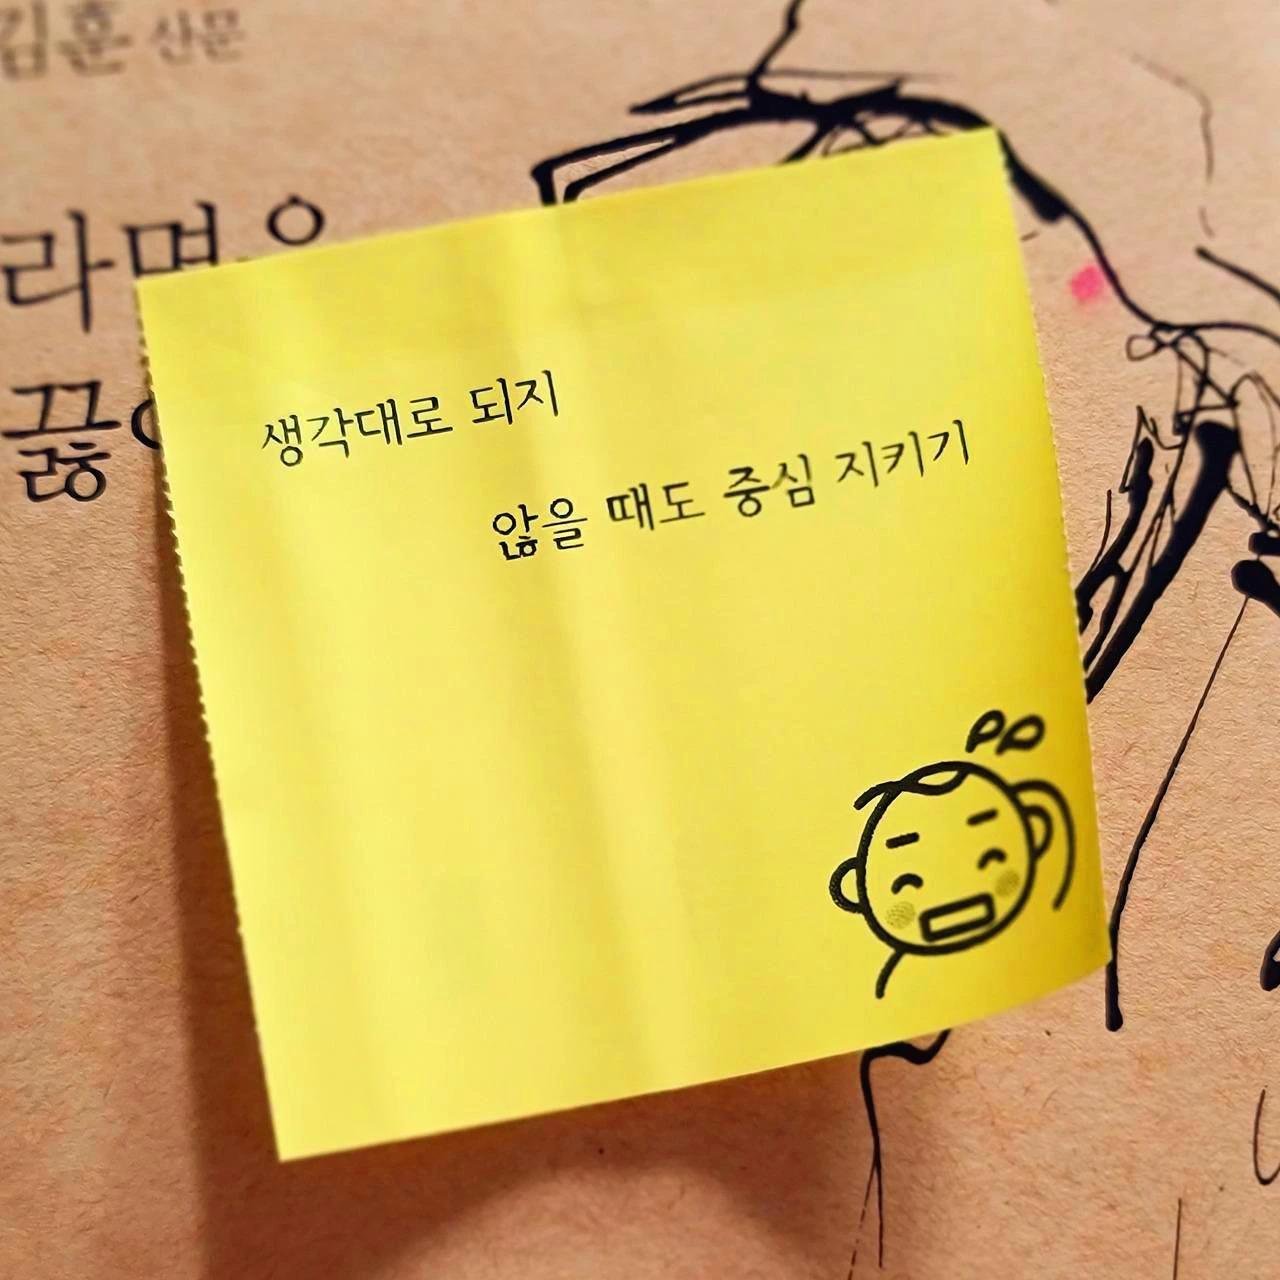 김훈 산문
라면을
끓
생각대로 되지
않을 때도 중심 지키기